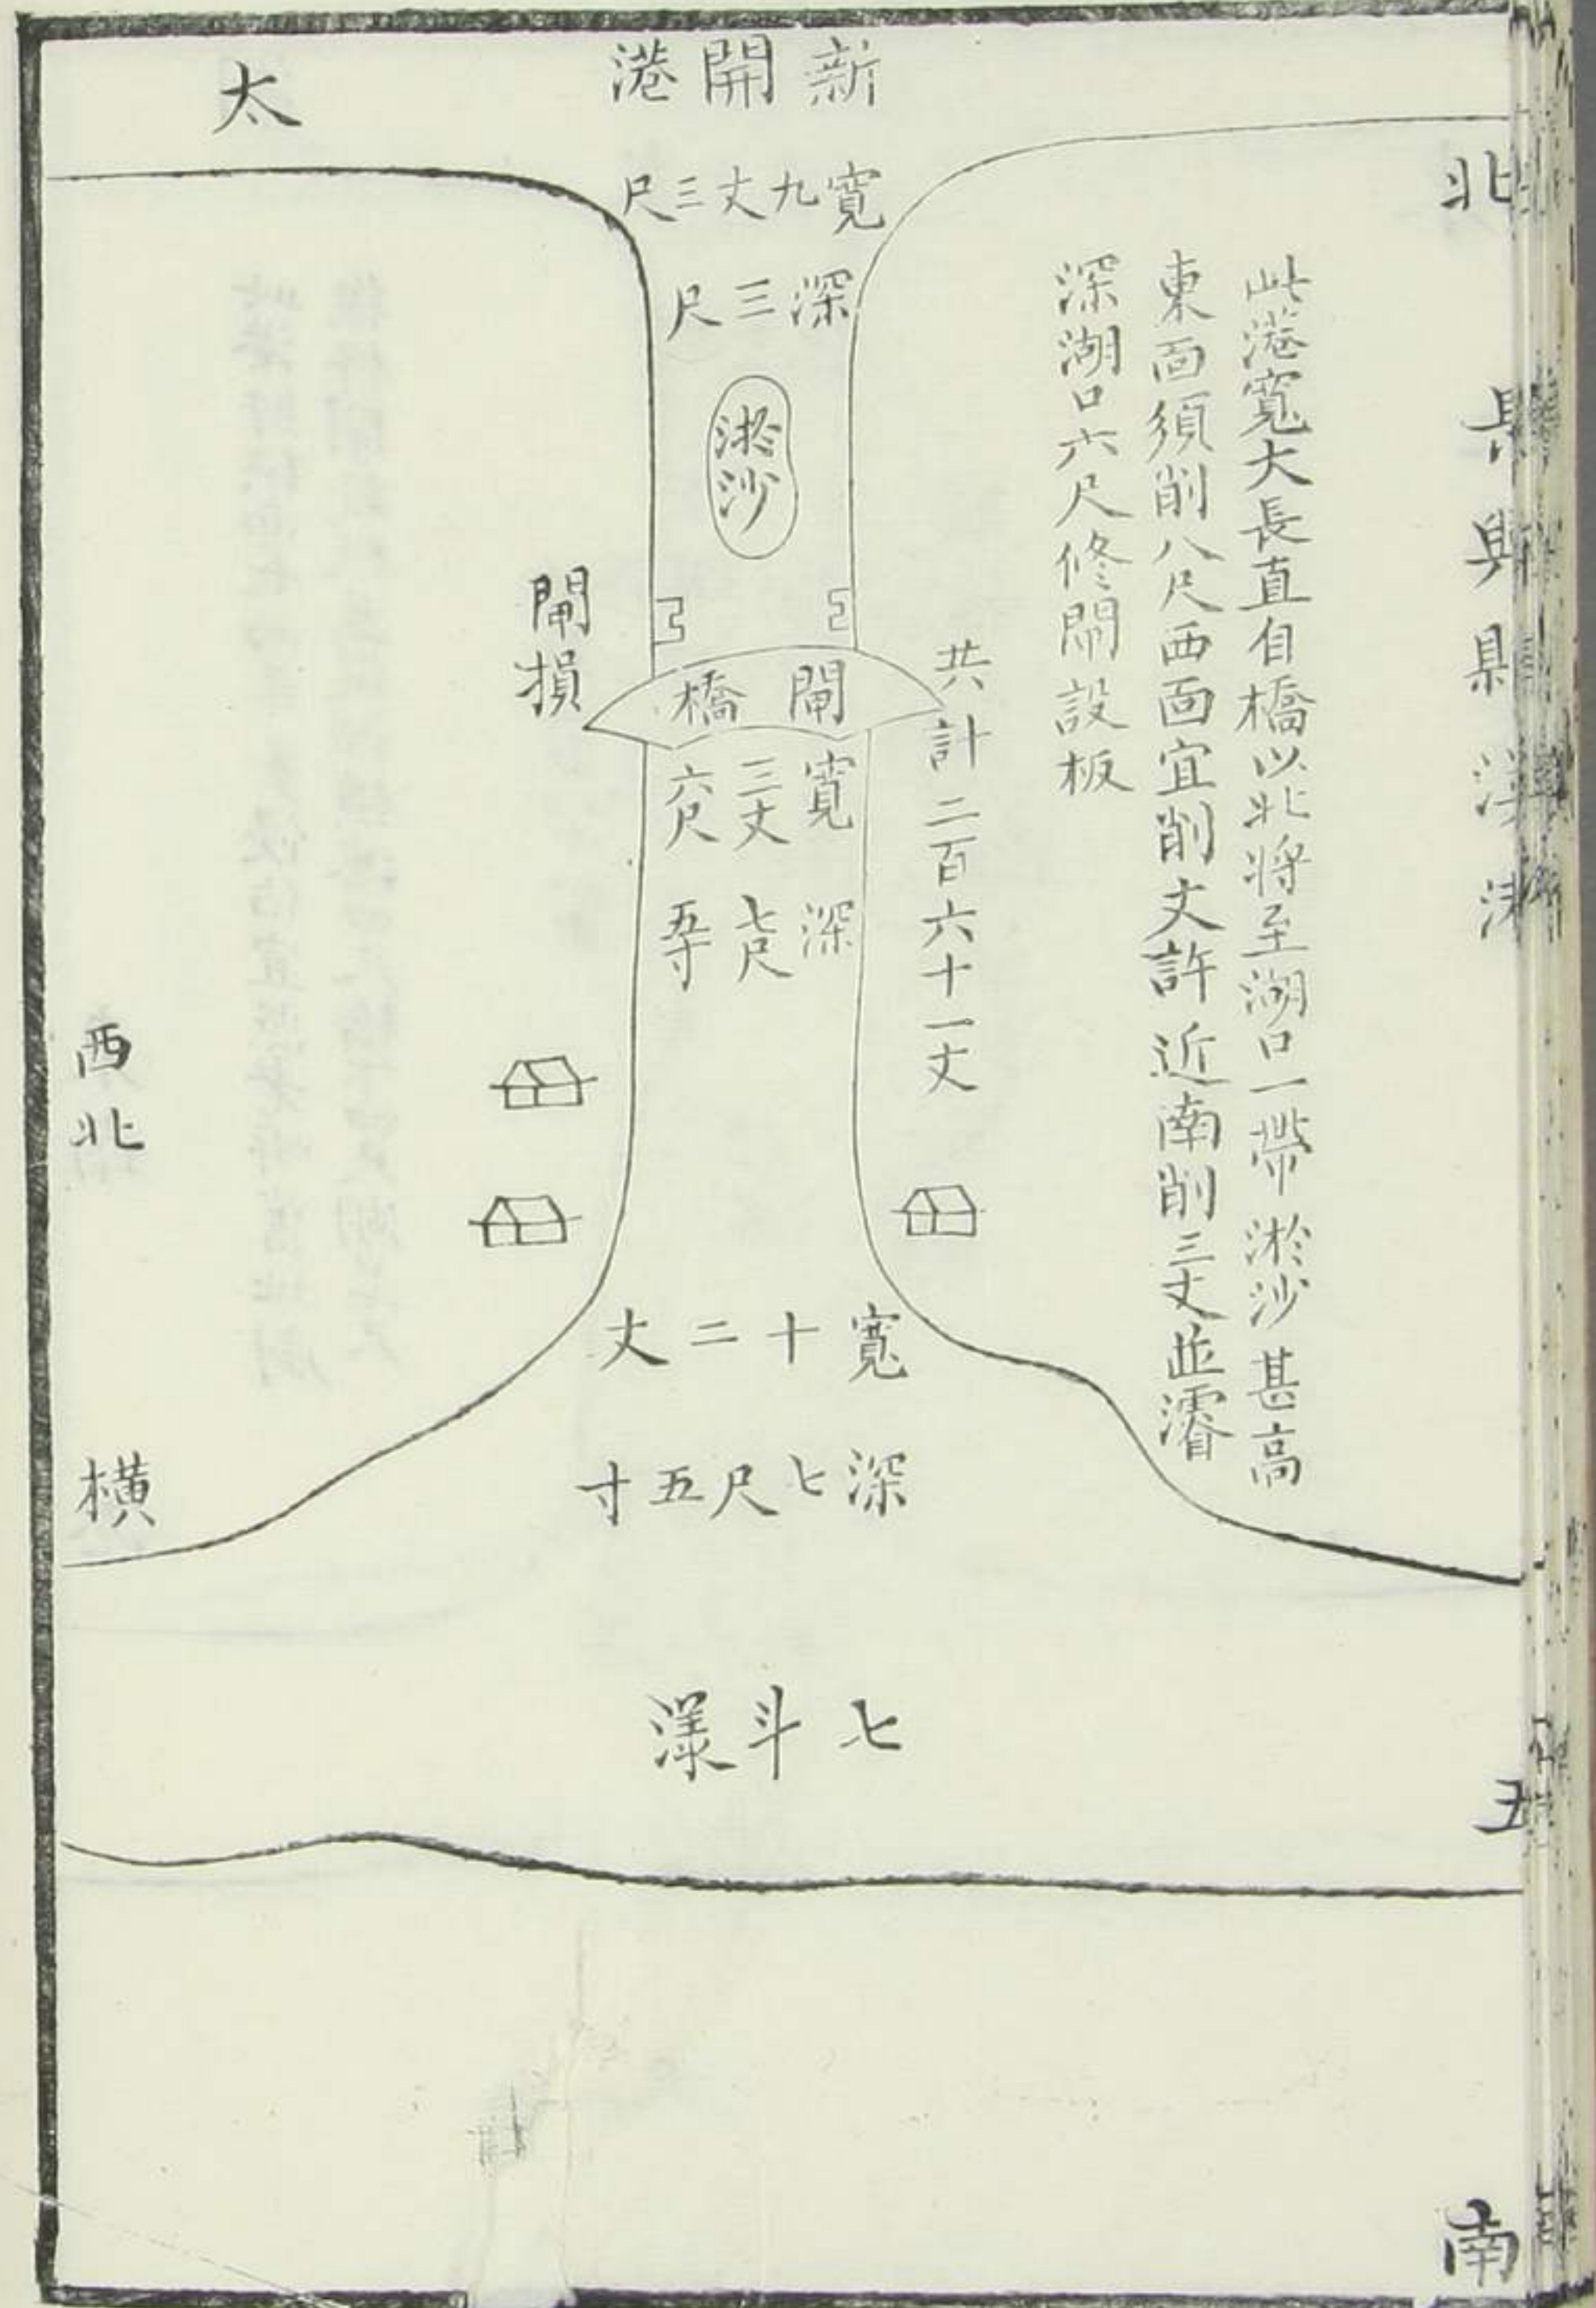 北
長興縣漊港
此港寬大長直自橋以北將至湖口一帶淤沙甚高
東面須削八尺西面宜削丈許近南削三丈並濬
深湖口六尺修閘設板
新開港
寬九丈三尺
深三尺
淤沙
閘橋
閘損
共計二百六十一丈
寬三丈六尺
深七尺五寸
寬十二丈
深七尺五寸
七斗漾
太
西北
橫
五
南